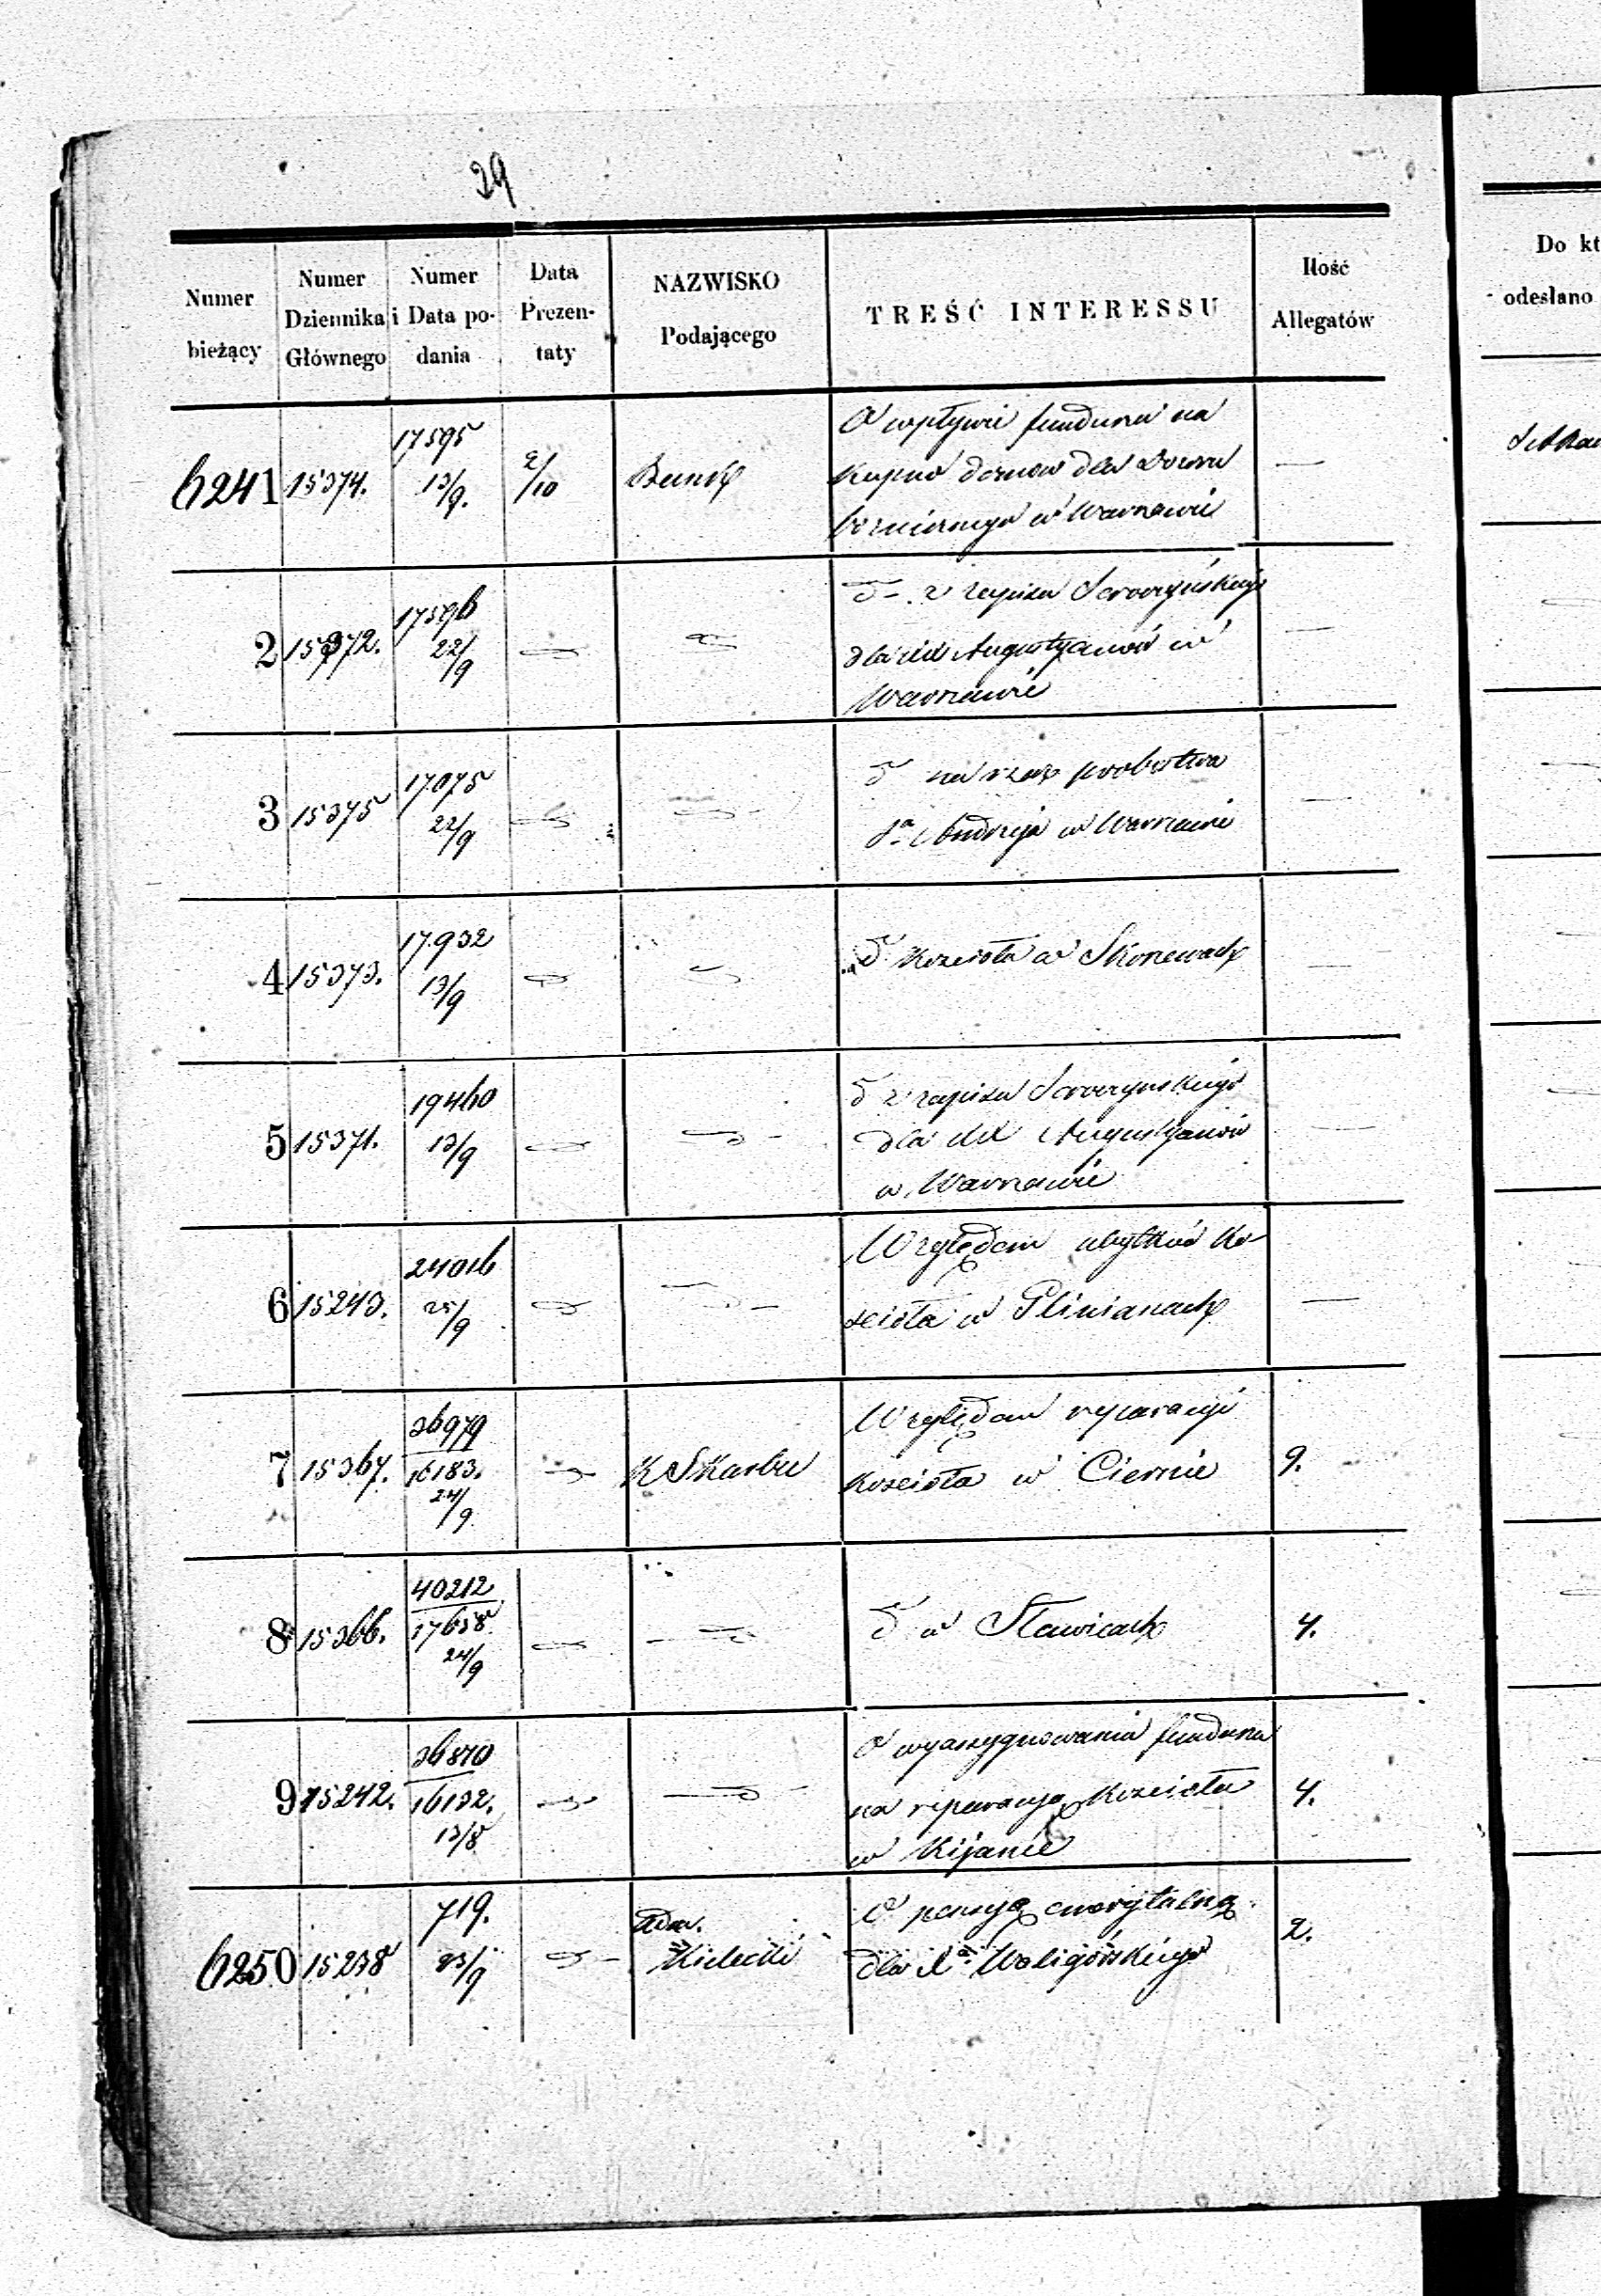 29
Numer bieżący
Numer Dziennika Głównego
Numer i Data podania
Data Prezentaty
NAZWISKO Podającego
TREŚĆ INTERESSU
Ilość Allegatów
Do kt
odesłano
6241 15374. 17595 13/9. 2/10 Bank
O wpływie funduszu na
kupno domow dla Domu
w Warszawie
—
2 15372. 17596 22/9
d– z zapisu
dla XX Augustyanów w
Warszawie
—
3 15375 17075 22/9
d na rzecz probostwa
Sgo Andrzeja w Warszawie
—
4 15373. 17932 13/9
d Kościoła w
—
5 15371. 19460 13/9
d z zapisu
dla XX Augustyanów
w Warszawie
—
6 15243. 24016 25/9
Względem Ko-
ścioła w
—
7 15367. 36979 16183. 24/9 K Skarbu
Względem reparacyi
Kościoła w Ciernie
9.
8 15366. 40212 17658 24/9
d w Sławicach
4.
9 15242. 36870 16132. 13/8
O wyassygnowania funduszu
na reparacyą Kościoła
w Kijanie
4.
6250 15238 719. 23/9
Adm.
Kielecki
O pensyą emerytalną
dla Xa Waligórskiego
2.